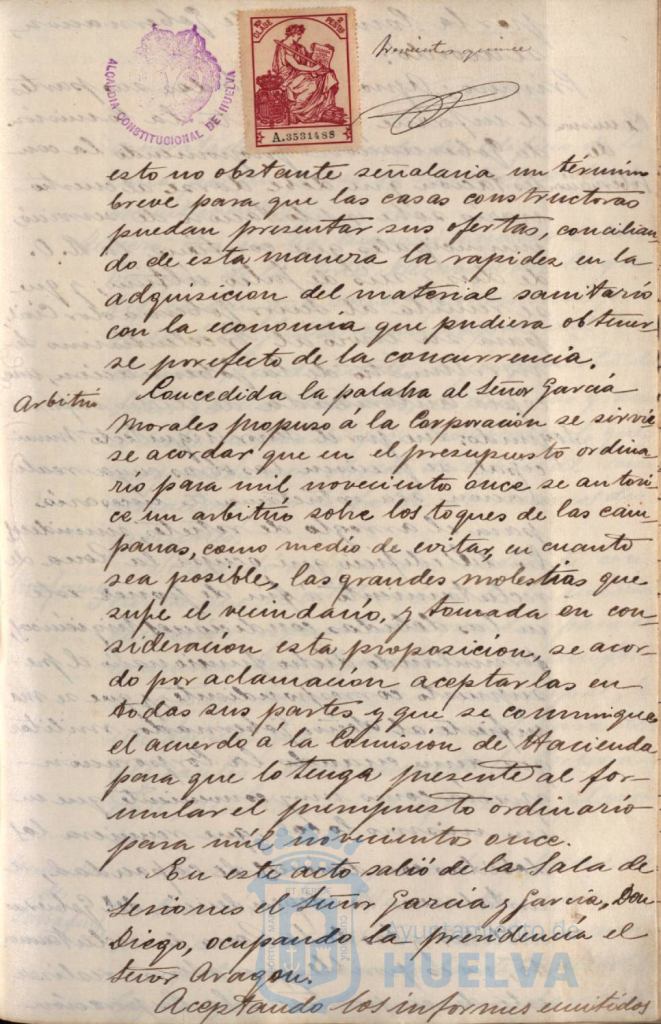 ALCALDIA CONSTITUCIONAL DE HUELVA
CLASE
PESETAS
A.3531488
trescientos quince
esto no obstante señalaria un término
breve para que las casas constructoras
puedan presentar sus ofertas, concilian-
do de esta manera la rapidez en la
adquisicion del material sanitario
con la economia que pudiera obtener-
se por efecto de la concurrencia.
Arbitrio
Concedida la palabra al Señor Garcia
Morales propuso á la Corporacion se sirvie-
se acordar que en el presupuesto ordina-
rio para mil noveciento once se autori-
ce un arbitrio sobre los toques de las cam-
panas, como medio de evitar, en cuanto
sea posible, las grandes molestias que
sufre el vecindario, y tomada en con-
sideracion esta proposicion, se acor-
dó por aclamación aceptarlas en
todas sus partes y que se comunique
el acuerdo á la Comision de Hacienda
para que lo tenga presente al for-
mular el presupuesto ordinario
para mil novecientos once.
En este acto salió de la Sala de
Sesiones el Señor Garcia y Garcia, Don
Diego, ocupando la presidencia el
Señor Aragon.
Aceptando los informes emitidos
Ayuntamiento de
HUELVA